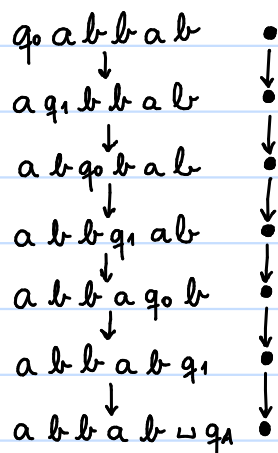 q₀ a b b a b
a q₁ b b a b
a b q₀ b a b
a b b q₁ a b
a b b a q₀ b
a b b a b q₁
a b b a b ⊔ q_A